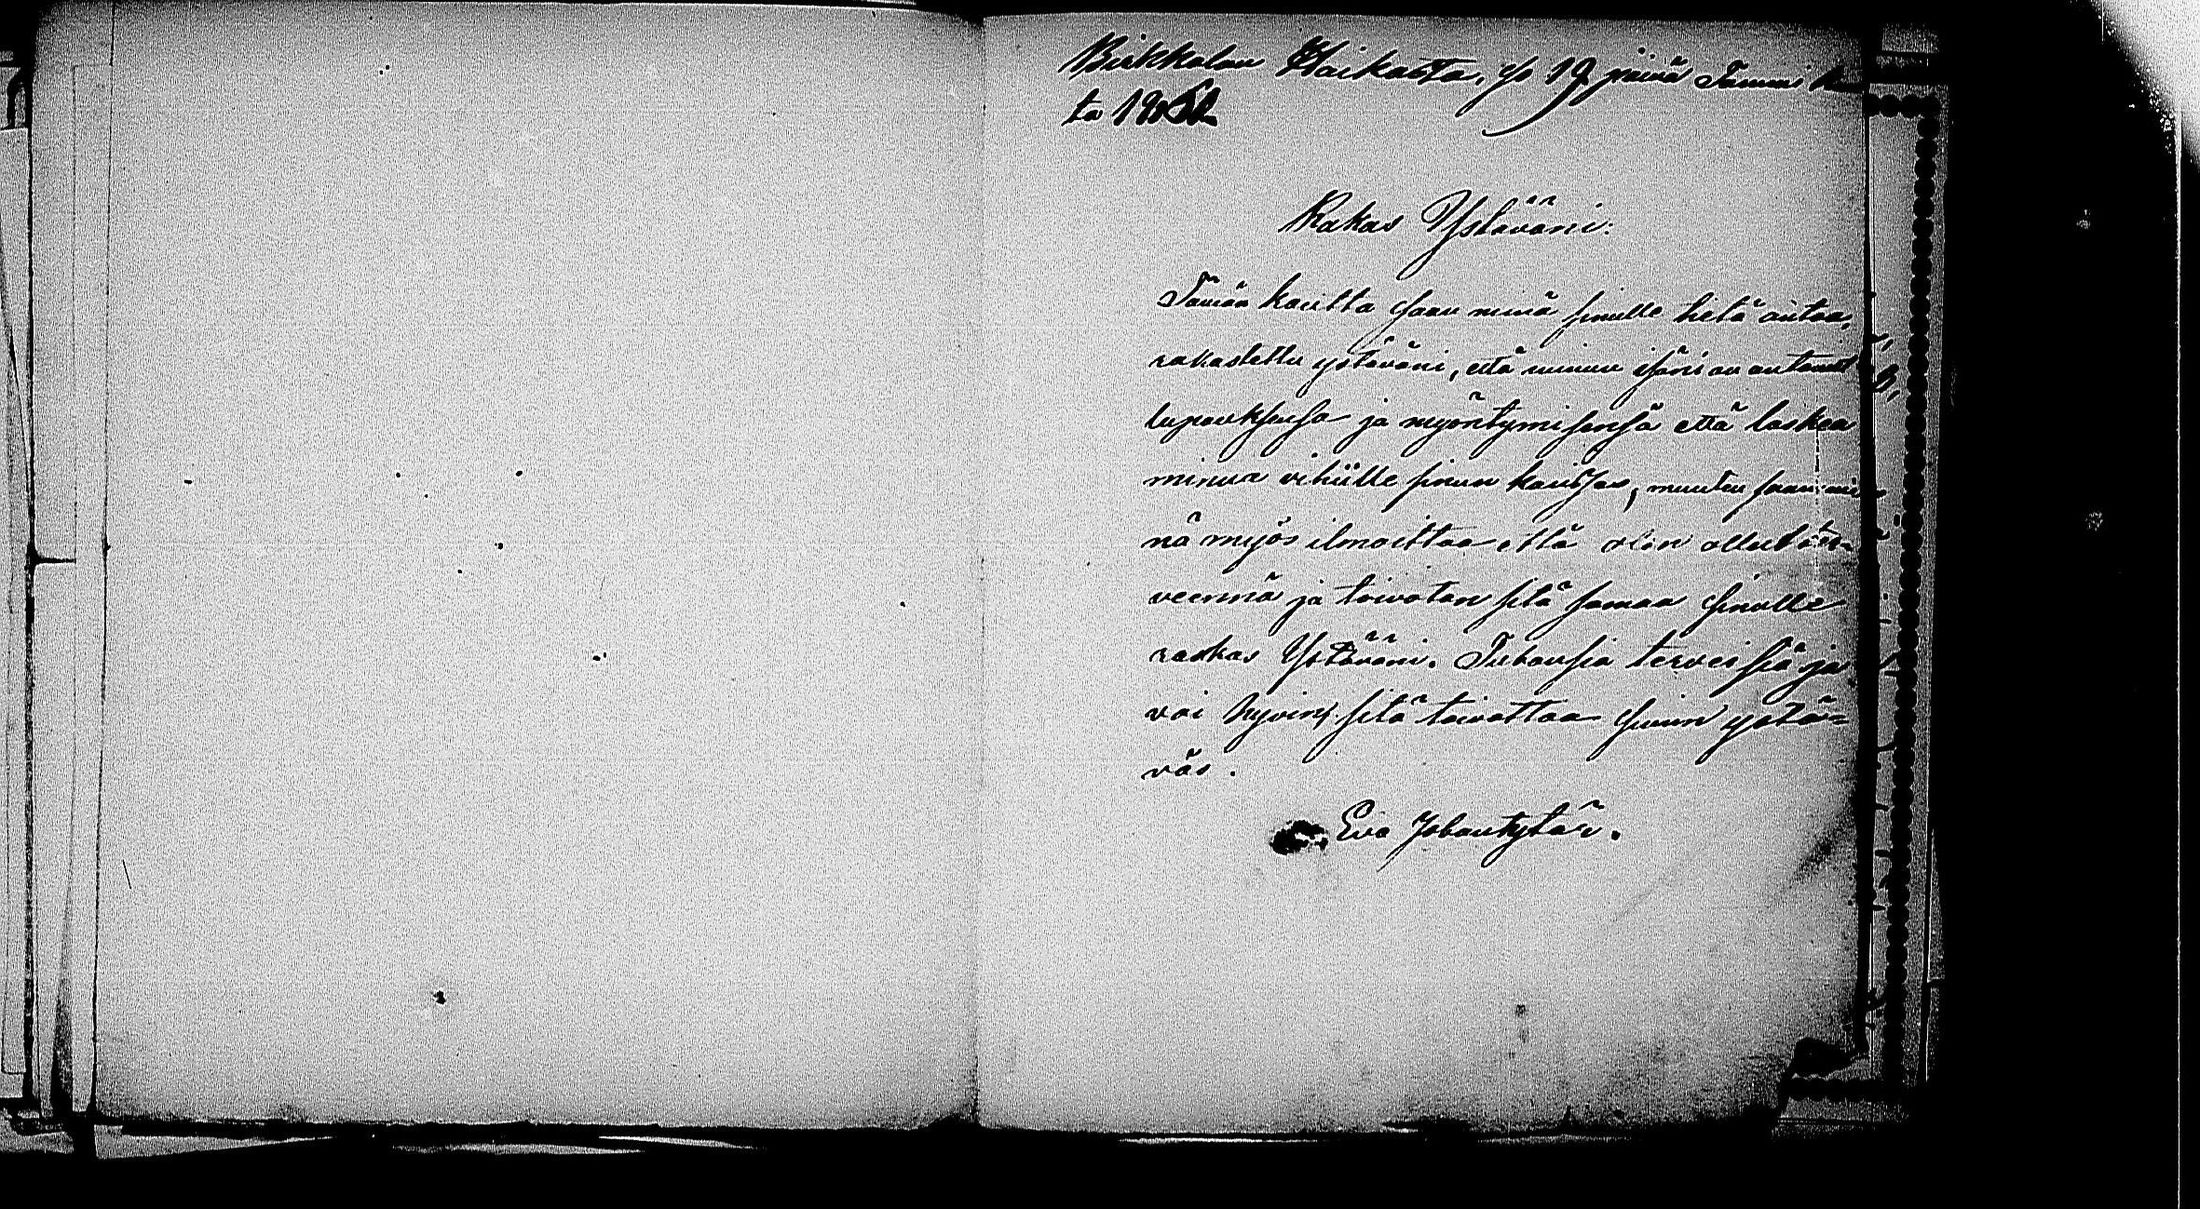 Birkkalan Haikasta, ss 19 päivä Tammi ku
ta 18
Rakas Ystäväni:
Tämän kautta saan minä sinulle tietä antaa,
rakastettu ystäväni, että minun isäni on antanut
lupauksensa ja myöntymisensä että laskea
minua vihille sinun kanssas, muuten saan mi
nä myös ilmoittaa että olen ollut ter
veennä ja toivotan sitä samaa sinulle
raakas Ystäväni. Tuhansia terveisiä ja
voi hyvin, sitä toivottaa sinun ystä=
väs.
Eva Johantytär.